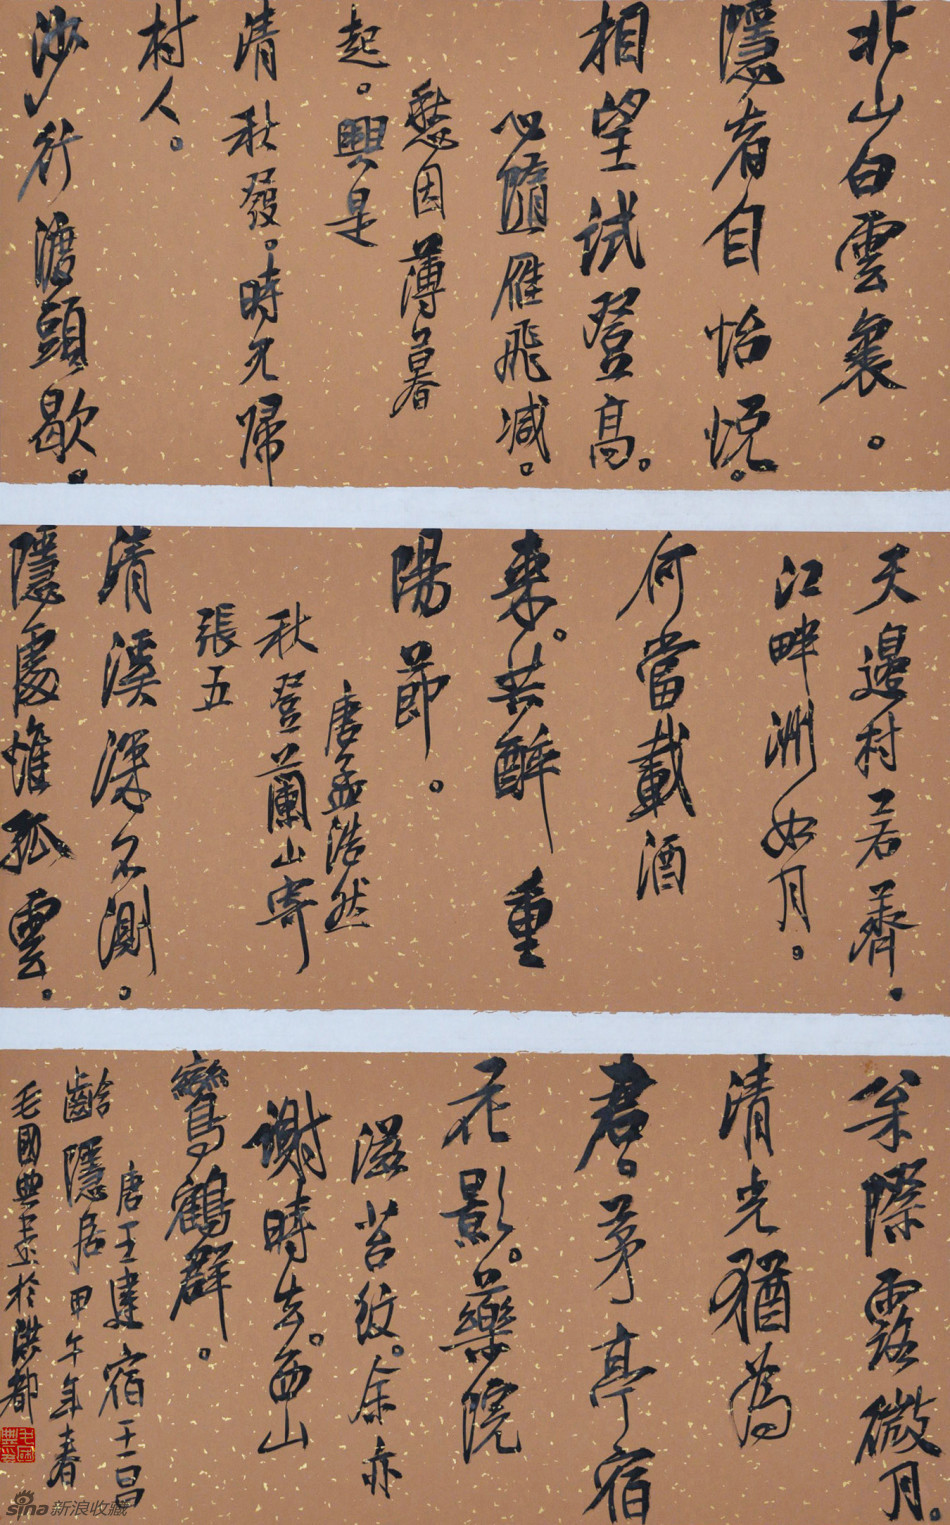 北山白雲裏。
隱者自怡悅。
相望試登高。
心隨雁飛滅。
愁因薄暮
起。興是
清秋發。時見歸
村人。
沙行渡頭歇。
天邊樹若薺。
江畔洲如月。
何當載酒
來。共醉重
陽節。
唐孟浩然
秋登蘭山寄
張五
清溪深不測。
隱處惟孤雲。
松際露微月。
清光猶為
君。茅亭宿
花影。藥院
滋苔紋。余亦
謝時去。西山
鸞鶴群。
唐王建宿王昌
齡隱居甲午年春
毛國典書於洪都
sina新浪收藏